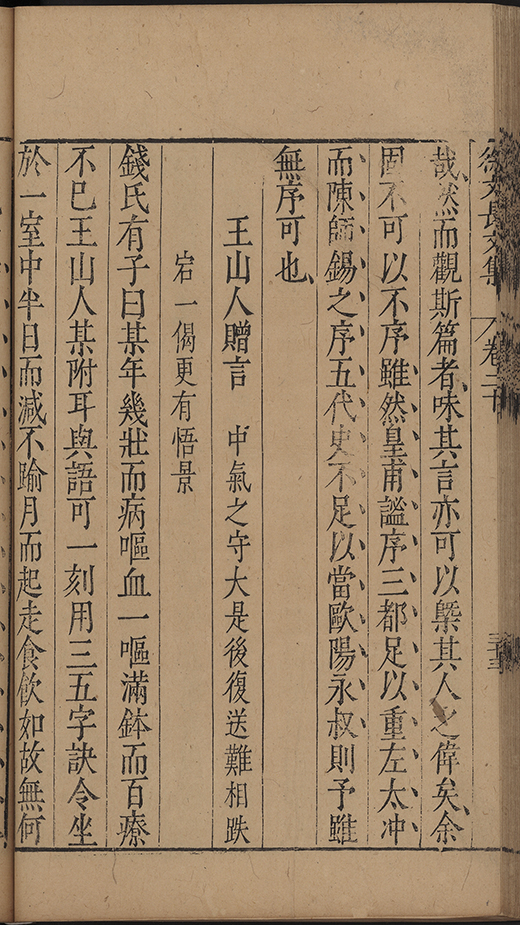 徐文長文集 卷二十
哉然而觀斯篇者味其言亦可以槩其人之偉矣余
固不可以不序雖然皇甫謐序三都足以重左太冲
而陳師錫之序五代史不足以當歐陽永叔則予雖
無序可也
王山人贈言 中氣之守大是後復送難相跌
宕一偈更有悟景
錢氏有子曰某年幾壯而病嘔血一嘔滿鉢而百療
不已王山人某附耳與語可一刻用三五字訣令坐
於一室中半日而減不踰月而起走食飲如故無何